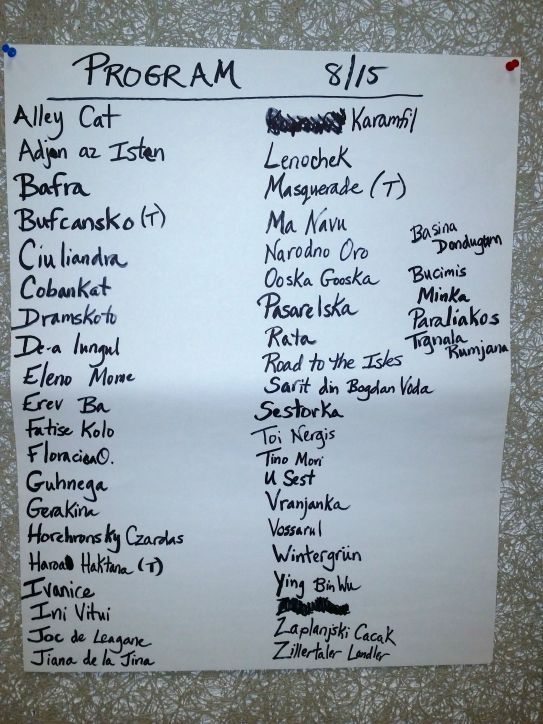 PROGRAM 8/15
Alley Cat
Adjon az Isten
Bafra
Bufcansko (T)
Ciuliandra
Cobankat
Dramskoto
De-a lungul
Eleno Mome
Erev Ba
Fatise Kolo
Floricica O.
Guhnega
Gerakina
Horehronsky Czardas
Haroa Haktana (T)
Ivanice
Ini Vitui
Joc de Leagane
Jiana de la Jina
Karamfil
Lenochek
Masquerade (T)
Ma Navu
Narodno Oro
Ooska Gooska
Pasarelska
Rata
Road to the Isles
Sarit din Bogdan Voda
Sestorka
Toi Nergis
Tino Mori
U Sest
Vranjanka
Vossarul
Wintergrün
Ying Bin Wu
Zaplanjski Cacak
Zillertaler Landler
Basina
Dondugom
Bucimis
Minka
Paraliakos
Trgnala
Rumjana